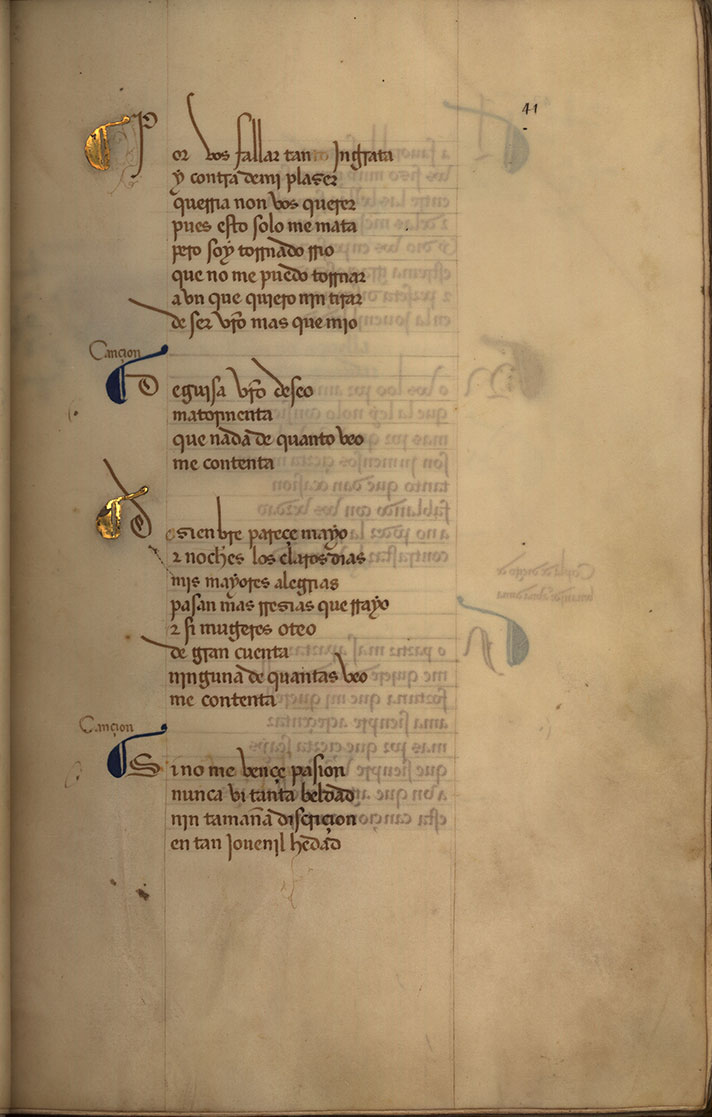 41
Por vos fallar tan Jngrata
y contra de mi plaser
querria non vos querer
pues esto solo me mata
pero soy tornado rrio
que no me puedo tornar
a vn que quiero nin tirar
de ser vr̃o mas que mio
Cançion
De guisa vr̃o deseo
matormenta
que nada de quanto veo
me contenta
Desienbre pareçe mayo
z noches los claros dias
mis mayores alegrias
pasan mas rresias que rrayo
z si mugeres oteo
de gran cuenta
ninguna de quantas veo
me contenta
Cançion
Si no me vençe pasion
nunca vi tanta beldad
nin tamaña discriçion
en tan Jouenil hedad